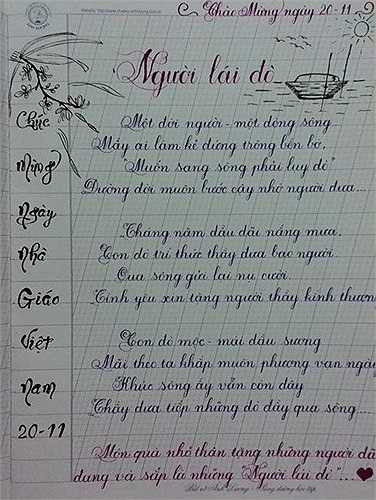 Chào Mừng ngày 20-11
Người lái đò
Chúc
Mừng
Ngày
Nhà
Giáo
Việt
Nam
20-11
Một đời người - một dòng sông
Mấy ai làm kẻ đứng trông bến bờ,
"Muốn sang sông phải luỵ đò"
Đường đời muôn bước cậy nhờ người đưa...
Tháng năm dầu dãi nắng mưa,
Con đò trí thức thầy đưa bao người.
Qua sông gửi lại nụ cười
Tình yêu xin tặng người thầy kính thương
Con đò mộc - mái đầu sương
Mãi theo ta khắp muôn phương vạn ngày
Khúc sông ấy vẫn còn đây
Thầy đưa tiếp những đò đầy qua sông...
Món quà nhỏ thân tặng những người đã
đang và sắp là những "Người lái đò"...